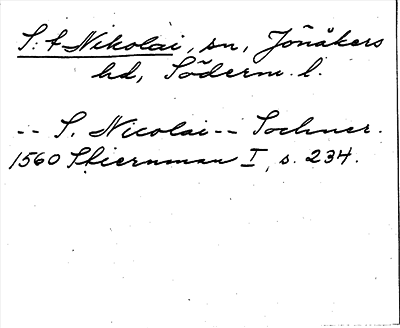 S:t Nikolai, sn, Jönåkers
hd, Söderm. l.
-- S. Nicolai -- Sochner.
1560 Stiernman I, s. 234.